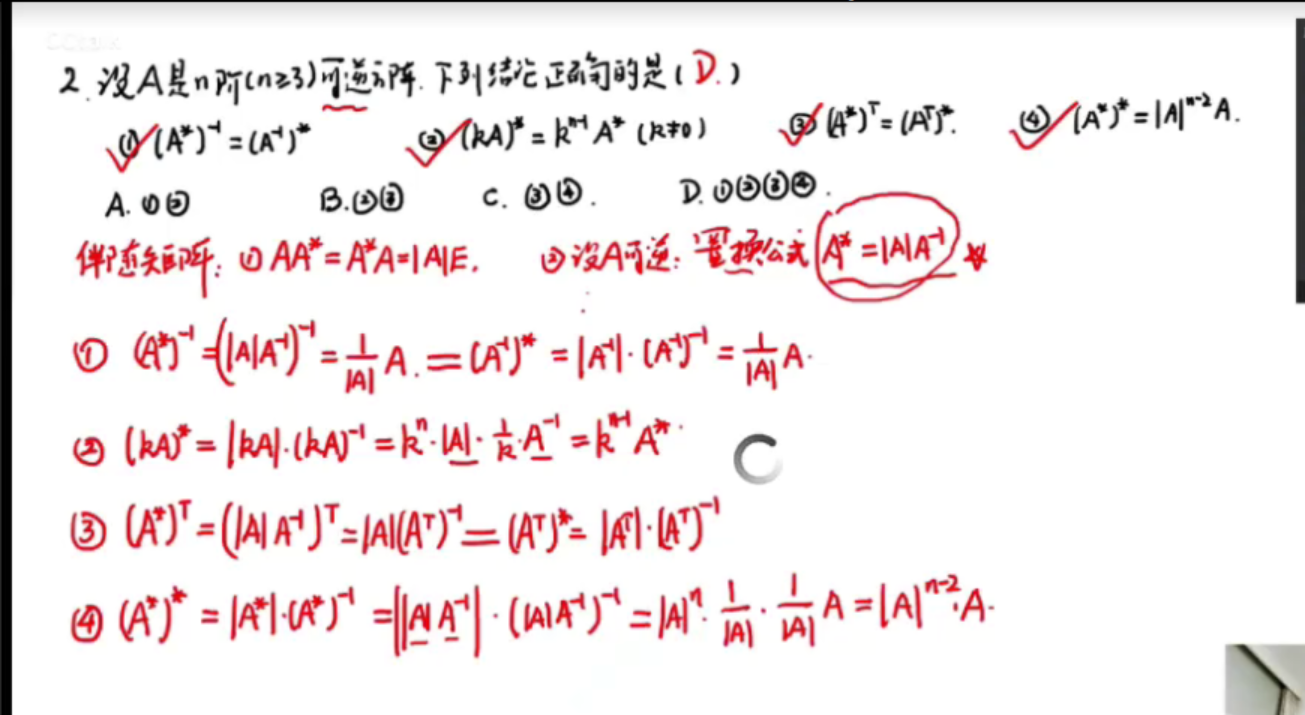 2. 设A是n阶(n≥3)可逆方阵. 下列结论正确的是(D.)
① (A*)⁻¹=(A⁻¹)* ② (kA)*=kⁿ⁻¹A* (k≠0) ③ (A*)ᵀ=(Aᵀ)*. ④ (A*)*=|A|ⁿ⁻²A.
A. ①② B.②③ C. ③④. D. ①②③④.
伴随矩阵: ① AA*=A*A=|A|E. ② 设A可逆: 置换公式 A*=|A|A⁻¹
① (A*)⁻¹=(|A|A⁻¹)⁻¹=1/|A| A. =(A⁻¹)*=|A⁻¹|·(A⁻¹)⁻¹=1/|A| A.
② (kA)*=|kA|·(kA)⁻¹=kⁿ·|A|·1/k·A⁻¹=kⁿ⁻¹A*.
③ (A*)ᵀ=(|A|A⁻¹)ᵀ=|A|(Aᵀ)⁻¹=(Aᵀ)*=|Aᵀ|·(Aᵀ)⁻¹
④ (A*)*=|A*|·(A*)⁻¹=||A|A⁻¹|·(|A|A⁻¹)⁻¹=|A|ⁿ·1/|A|·1/|A| A=|A|ⁿ⁻²·A.